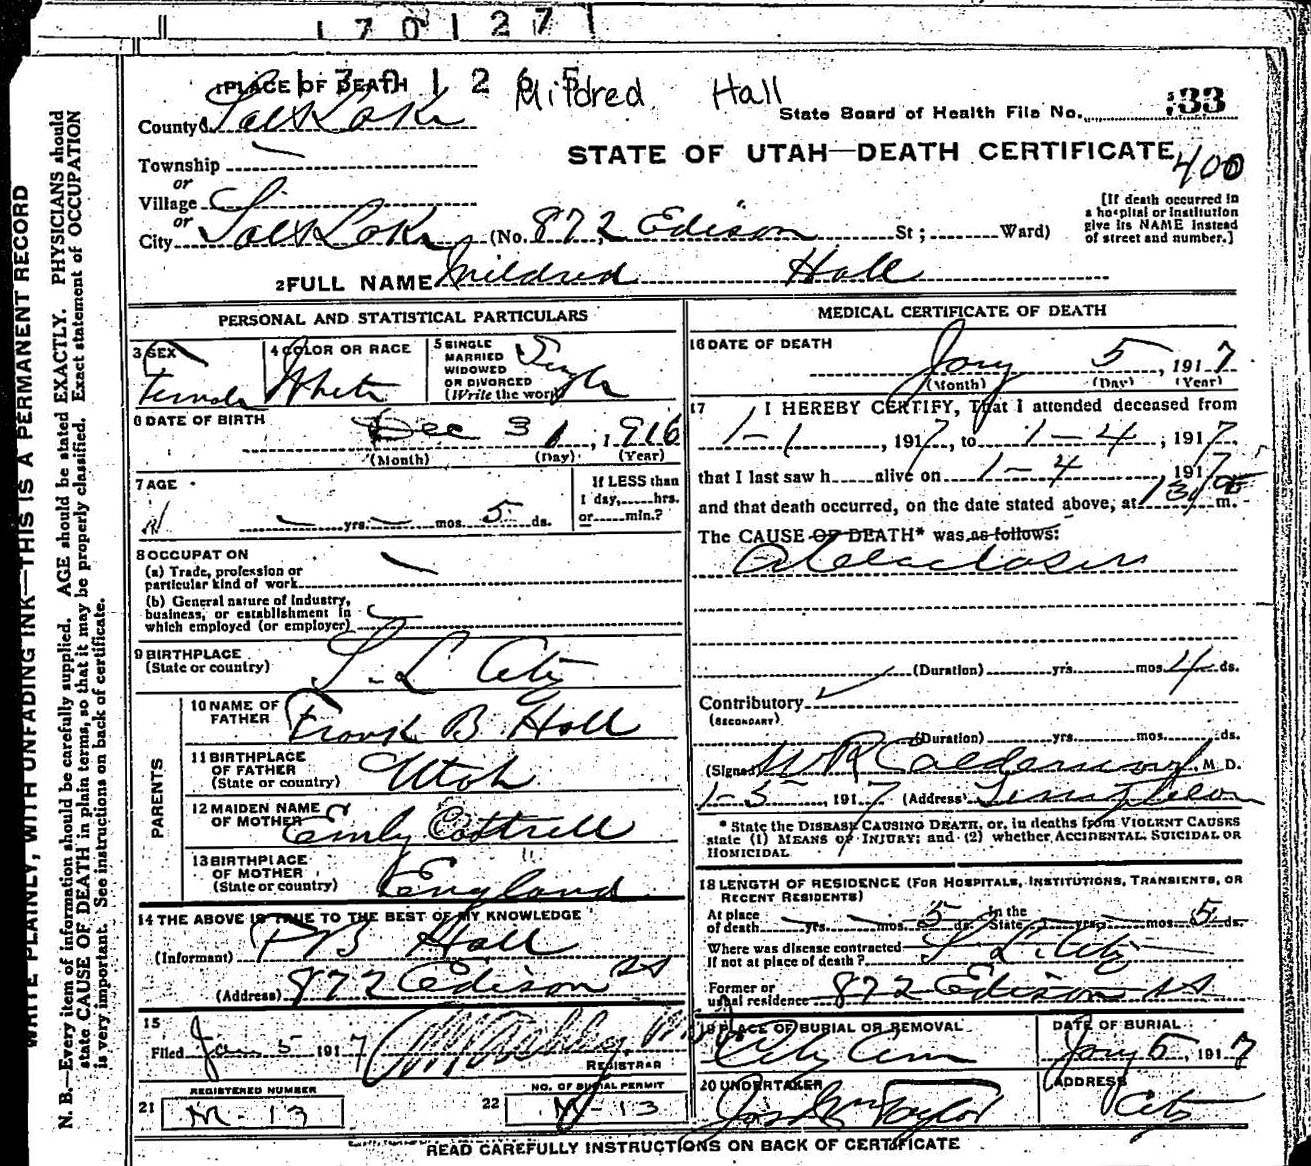 170127
170126
Mildred Hall
1 PLACE OF DEATH
State Board of Health File No. 33
County Salt Lake
STATE OF UTAH—DEATH CERTIFICATE
400
Township
or
Village
or
City Salt Lake (No. 872 Edison St; Ward)
[If death occurred in
a hospital or institution
give its NAME instead
of street and number.]
2 FULL NAME Mildred Hall
PERSONAL AND STATISTICAL PARTICULARS
3 SEX
Female
4 COLOR OR RACE
White
5 SINGLE
MARRIED
WIDOWED
OR DIVORCED
(Write the word)
Single
6 DATE OF BIRTH
Dec 31, 1916
(Month) (Day) (Year)
7 AGE
yrs. mos. 5 ds.
If LESS than
1 day, hrs.
or min.?
8 OCCUPATION
(a) Trade, profession or
particular kind of work
(b) General nature of industry,
business, or establishment in
which employed (or employer)
9 BIRTHPLACE
(State or country)
S. L City
PARENTS
10 NAME OF
FATHER
Frank B Hall
11 BIRTHPLACE
OF FATHER
(State or country)
Utah
12 MAIDEN NAME
OF MOTHER
Emily Cottrell
13 BIRTHPLACE
OF MOTHER
(State or country)
England
14 THE ABOVE IS TRUE TO THE BEST OF MY KNOWLEDGE
(Informant) F B Hall
(Address) 872 Edison St
15
Filed Jan 5 1917
REGISTRAR
REGISTERED NUMBER
21 M-13
NO. OF BURIAL PERMIT
22 M-13
MEDICAL CERTIFICATE OF DEATH
16 DATE OF DEATH
Jany 5, 1917
(Month) (Day) (Year)
17 I HEREBY CERTIFY, That I attended deceased from
1-1, 1917, to 1-4, 1917,
that I last saw h alive on 1-4, 1917
and that death occurred, on the date stated above, at 130 m.
The CAUSE OF DEATH* was as follows:
Atelectasis
(Duration) yrs. mos. 4 ds.
Contributory
(SECONDARY)
(Duration) yrs. mos. ds.
(Signed) W R Calderwood, M. D.
1-5, 1917 (Address)
* State the DISEASE CAUSING DEATH, or, in deaths from VIOLENT CAUSES
state (1) MEANS OF INJURY; and (2) whether ACCIDENTAL, SUICIDAL OR
HOMICIDAL
18 LENGTH OF RESIDENCE (FOR HOSPITALS, INSTITUTIONS, TRANSIENTS, OR
RECENT RESIDENTS)
At place
of death yrs. mos. 5 ds. In the
State yrs. mos. 5 ds.
Where was disease contracted
If not at place of death? S L. City
Former or
usual residence 872 Edison St
19 PLACE OF BURIAL OR REMOVAL
City Cem
DATE OF BURIAL
Jany 6, 1917
20 UNDERTAKER
Jos Wm Taylor
ADDRESS
City
READ CAREFULLY INSTRUCTIONS ON BACK OF CERTIFICATE
WRITE PLAINLY, WITH UNFADING INK—THIS IS A PERMANENT RECORD
N. B.—Every item of information should be carefully supplied. AGE should be stated EXACTLY. PHYSICIANS should
state CAUSE OF DEATH in plain terms, so that it may be properly classified. Exact statement of OCCUPATION
is very important. See instructions on back of certificate.